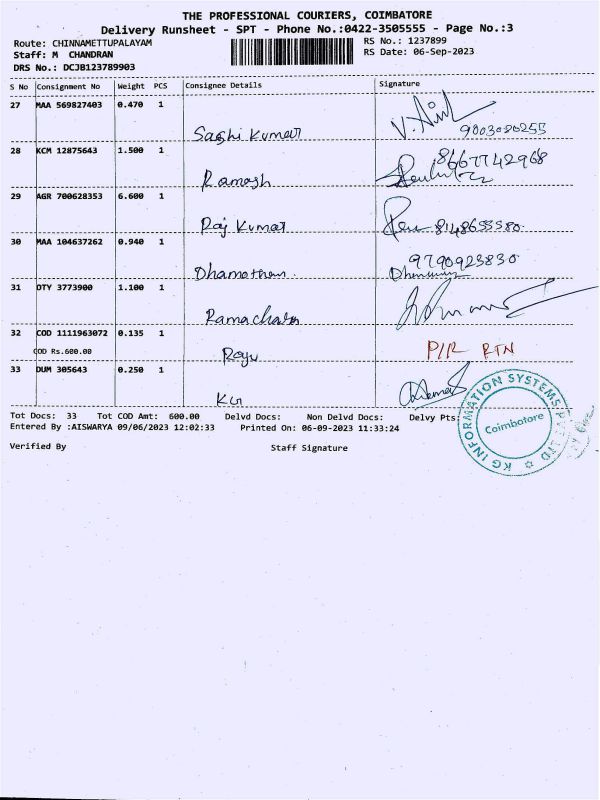 THE PROFESSIONAL COURIERS, COIMBATORE
Delivery Runsheet - SPT - Phone No.:0422-3505555 - Page No.:3
Route: CHINNAMETTUPALAYAM RS No.: 1237899
Staff: M CHANDRAN RS Date: 06-Sep-2023
DRS No.: DCJB123789903
S No Consignment No Weight PCS Consignee Details Signature
27 MAA 569827403 0.470 1
Sashi Kumar 9003080255
28 KCM 12875643 1.500 1 8667742968
Ramesh
29 AGR 700628353 6.600 1
Raj Kumar 8148655580
30 MAA 104637262 0.940 1 9790923830
Dhamotharn
31 OTY 3773900 1.100 1
Ramachan
32 COD 1111963072 0.135 1
COD Rs.600.00 Raju P/R RTN
33 DUM 305643 0.250 1
KG
Tot Docs: 33 Tot COD Amt: 600.00 Delvd Docs: Non Delvd Docs: Delvy Pts:
Entered By :AISWARYA 09/06/2023 12:02:33 Printed On: 06-09-2023 11:33:24
Verified By Staff Signature
KG INFORMATION SYSTEMS PVT LTD
Coimbatore